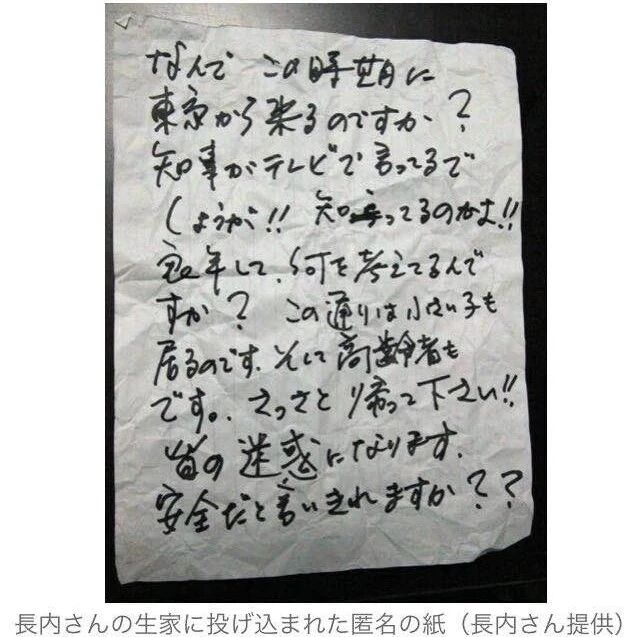 なんで この時期に
東京から来るのですか？
知事がテレビで言ってるで
しょうが!! 知ってるのかよ!!
良い年して、何を考えてるんで
すか？ この通りは小さい子も
居るのです、そして高齢者も
です。さっさと帰って下さい!!
皆の迷惑になります。
安全だと言いきれますか？？
長内さんの生家に投げ込まれた匿名の紙（長内さん提供）